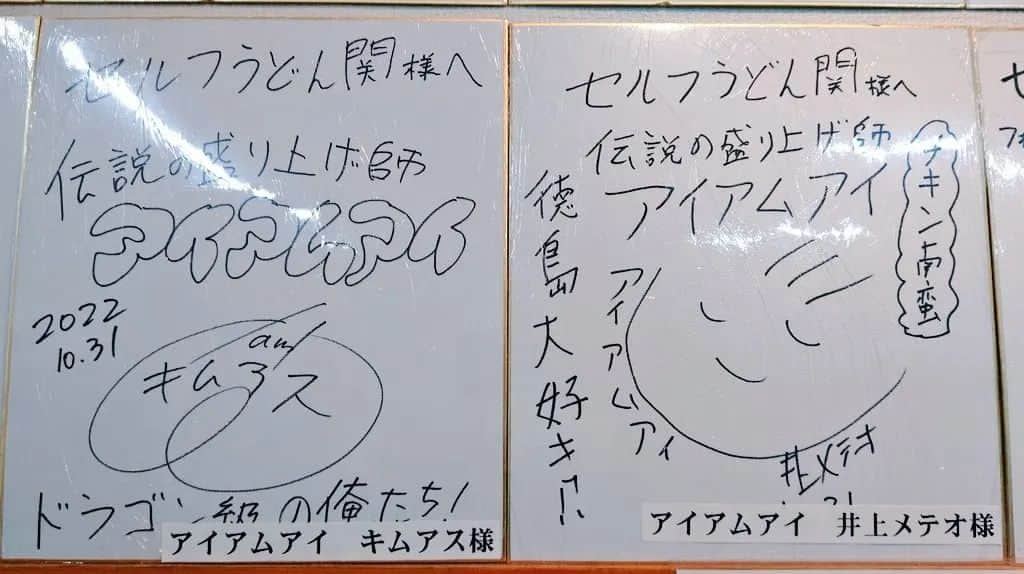 セルフうどん関様へ
伝説の盛り上げ師
アイアムアイ
2022
10.31
am
キムアス
ドラゴン級の俺たち!
アイアムアイ キムアス様
セルフうどん関様へ
伝説の盛り上げ師
アイアムアイ
チキン南蛮
徳島大好き!!
アイアムアイ
井上メテオ
アイアムアイ 井上メテオ様